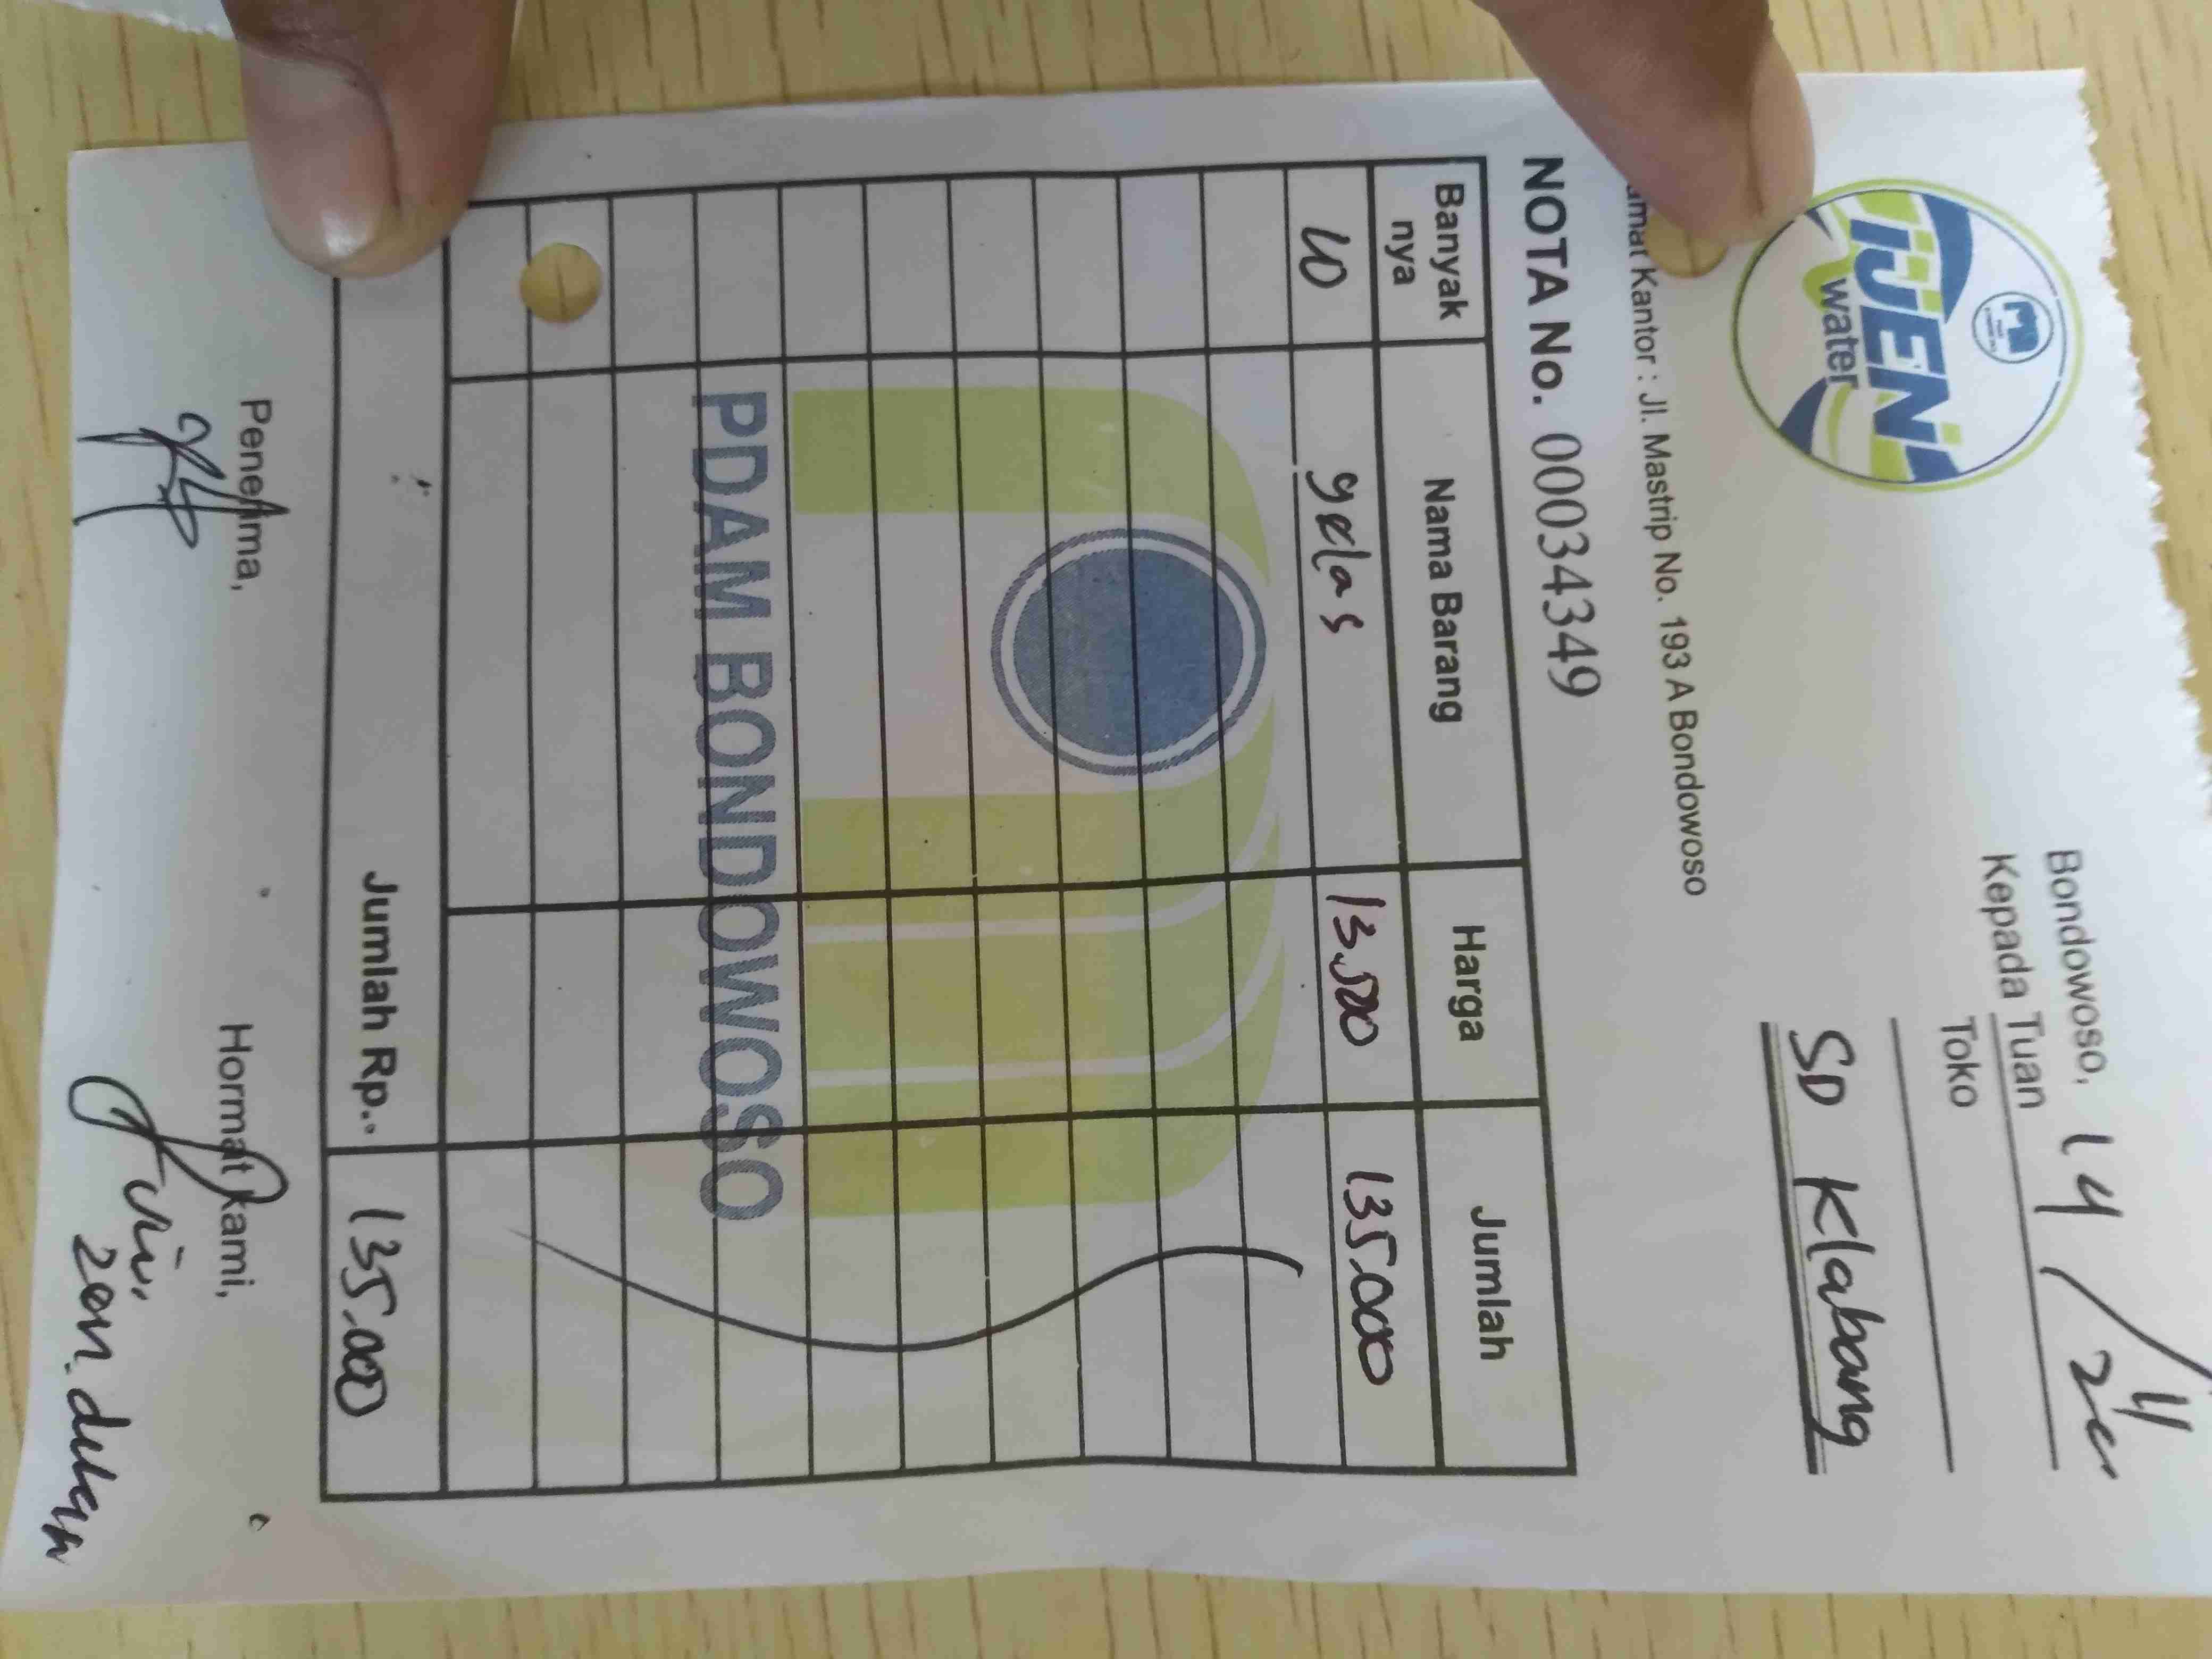 IJEN
water
Bondowoso, 14/11
Kepada Tuan
Toko
SD Klabang
amat Kantor : Jl. Mastrip No. 193 A Bondowoso
NOTA No. 00034349
Banyak nya Nama Barang Harga Jumlah
10 gelas 13.500 135.000
PDAM BONDOWOSO
Jumlah Rp. 135.000
Penerima, Hormat kami,